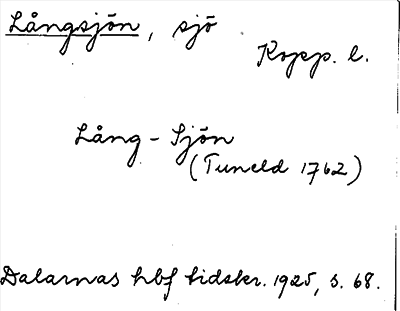 Långsjön, sjö
Kopp. l.
Lång-Sjön
(Tuneld 1762)
Dalarnas hbf tidskr. 1925, s. 68.